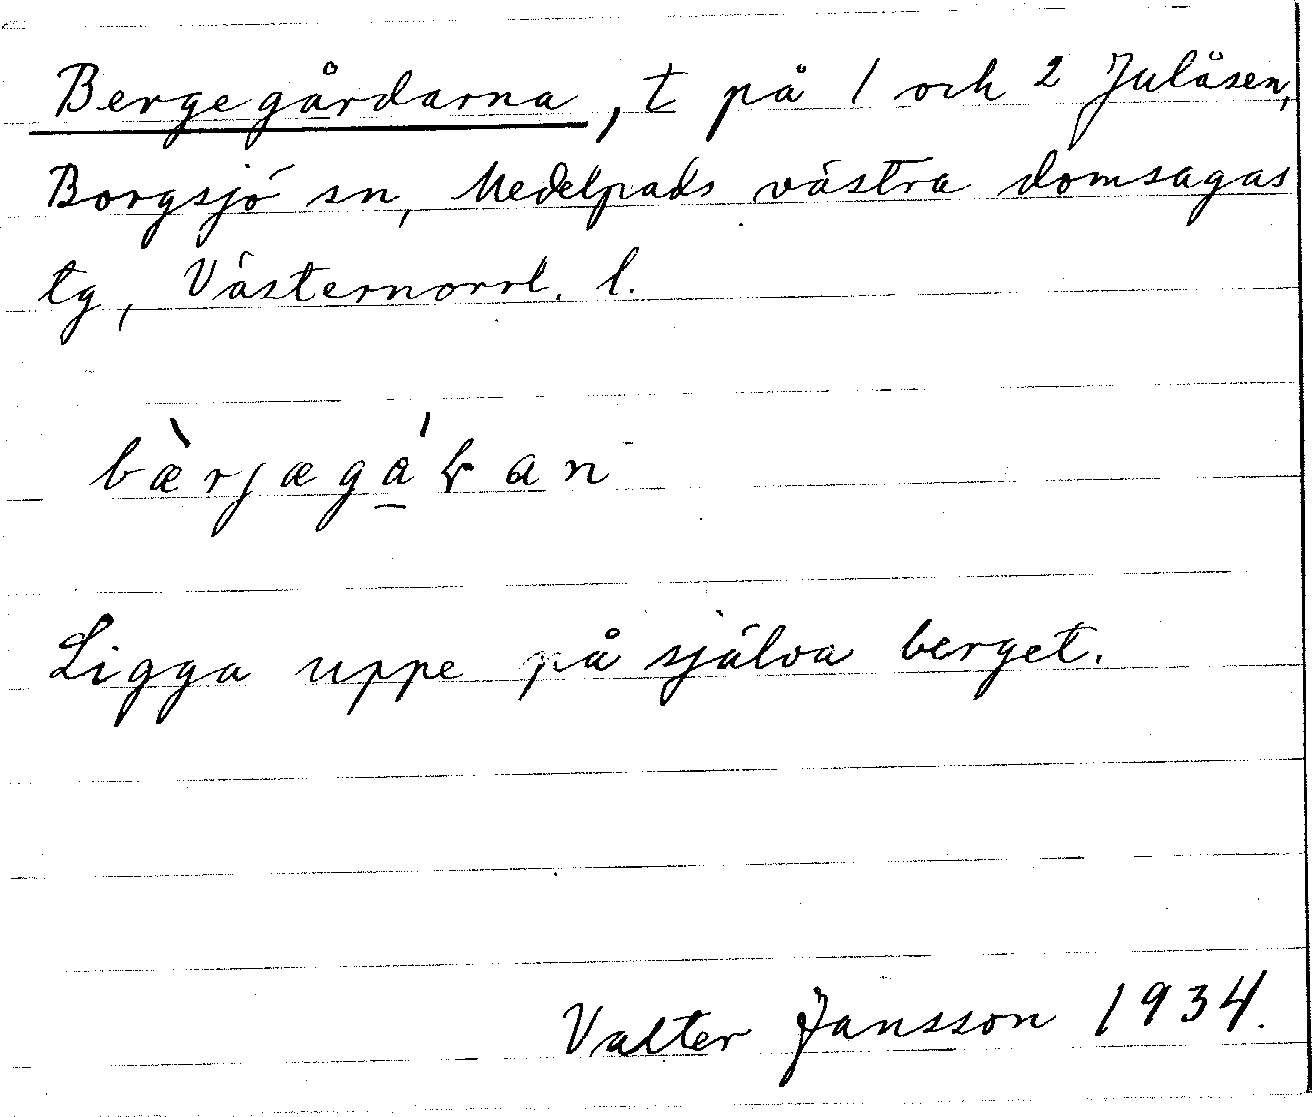 Bergegårdarna, t på 1 och 2 Julåsen,
Borgsjö sn, Medelpads västra domsagas
tg, Västernorrl. l.
bæ̀rjægá̱ɽan
Ligga uppe på själva berget.
Valter Jansson 1934.